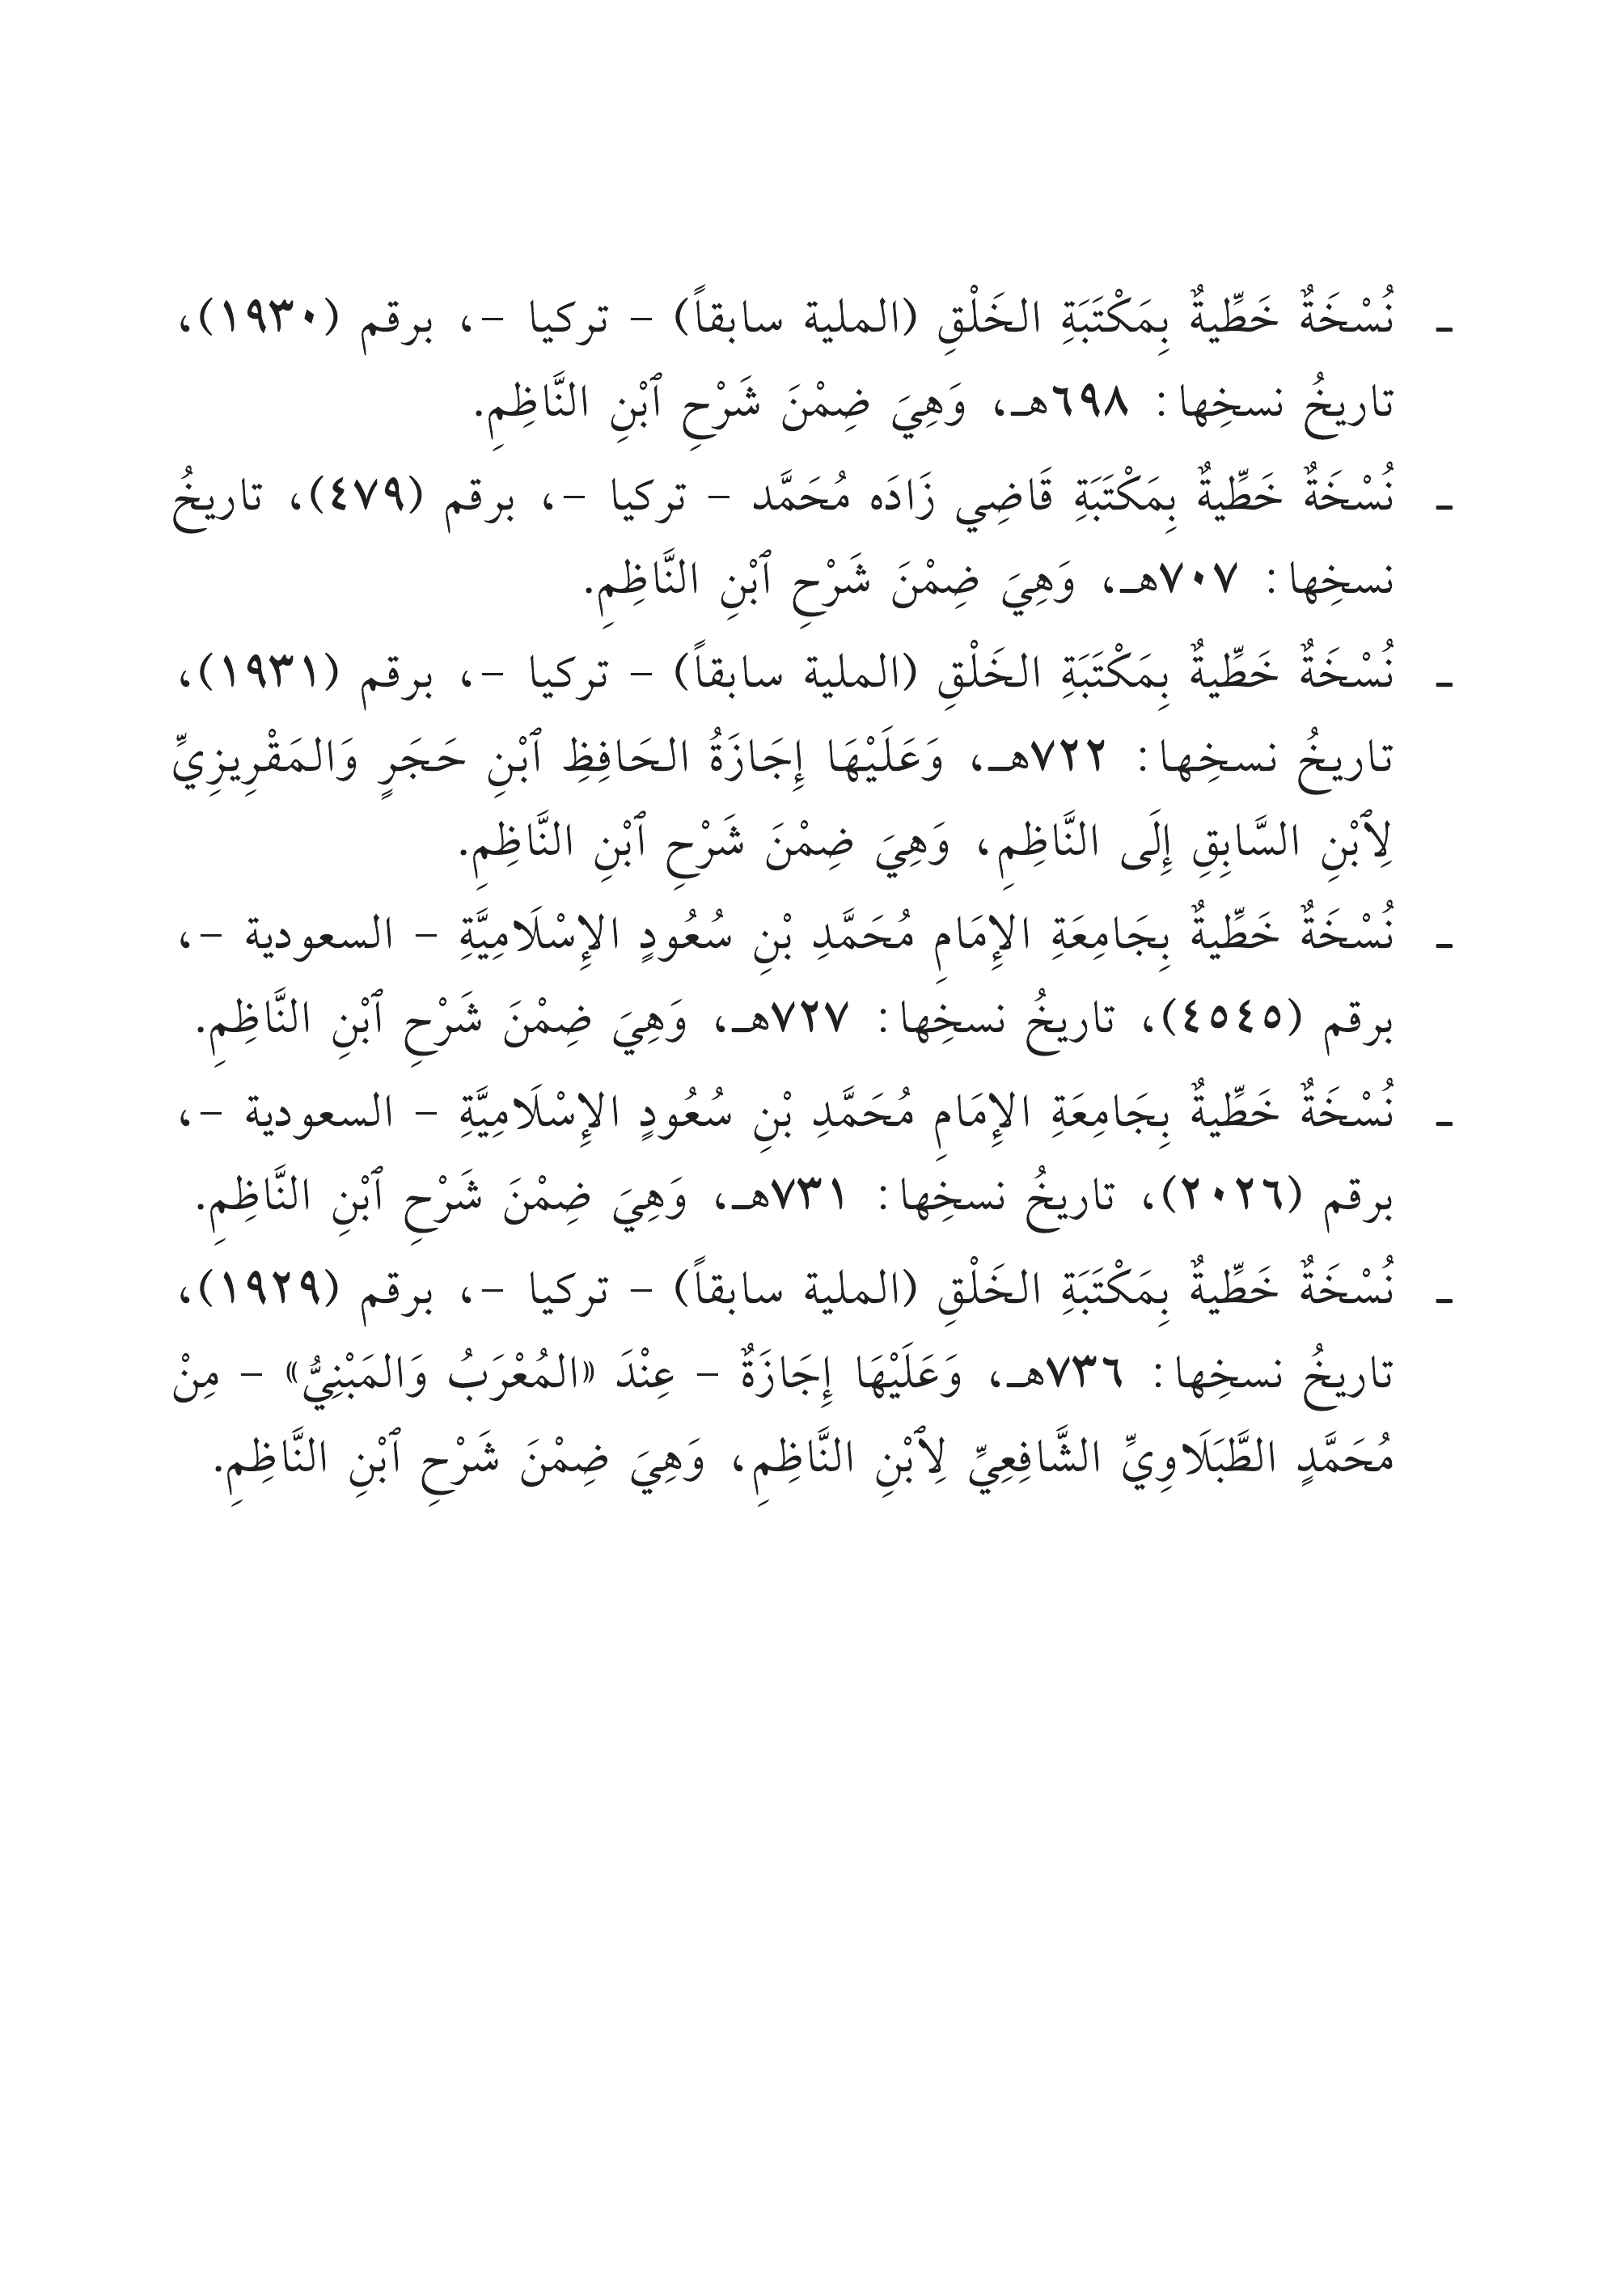 ـ نُسْخَةٌ خَطِّيةٌ بِمَكْتَبَةِ الخَلْقِ (الملية سابقاً) – تركيا –، برقم (١٩٣٠)،
تاريخُ نسخِها: ٦٩٨هـ، وَهِيَ ضِمْنَ شَرْحِ ٱبْنِ النَّاظِمِ.
ـ نُسْخَةٌ خَطِّيةٌ بِمَكْتَبَةِ قَاضِي زَادَه مُحَمَّد – تركيا –، برقم (٤٧٩)، تاريخُ
نسخِها: ٧٠٧هـ، وَهِيَ ضِمْنَ شَرْحِ ٱبْنِ النَّاظِمِ.
ـ نُسْخَةٌ خَطِّيةٌ بِمَكْتَبَةِ الخَلْقِ (الملية سابقاً) – تركيا –، برقم (١٩٣١)،
تاريخُ نسخِها: ٧٢٢هـ، وَعَلَيْهَا إِجَازَةُ الحَافِظِ ٱبْنِ حَجَرٍ وَالمَقْرِيزِيِّ
لِٱبْنِ السَّابِقِ إِلَى النَّاظِمِ، وَهِيَ ضِمْنَ شَرْحِ ٱبْنِ النَّاظِمِ.
ـ نُسْخَةٌ خَطِّيةٌ بِجَامِعَةِ الإِمَامِ مُحَمَّدِ بْنِ سُعُودٍ الإِسْلَامِيَّةِ – السعودية –،
برقم (٤٥٤٥)، تاريخُ نسخِها: ٧٢٧هـ، وَهِيَ ضِمْنَ شَرْحِ ٱبْنِ النَّاظِمِ.
ـ نُسْخَةٌ خَطِّيةٌ بِجَامِعَةِ الإِمَامِ مُحَمَّدِ بْنِ سُعُودٍ الإِسْلَامِيَّةِ – السعودية –،
برقم (٢٠٢٦)، تاريخُ نسخِها: ٧٣١هـ، وَهِيَ ضِمْنَ شَرْحِ ٱبْنِ النَّاظِمِ.
ـ نُسْخَةٌ خَطِّيةٌ بِمَكْتَبَةِ الخَلْقِ (الملية سابقاً) – تركيا –، برقم (١٩٢٩)،
تاريخُ نسخِها: ٧٣٦هـ، وَعَلَيْهَا إِجَازَةٌ – عِنْدَ «المُعْرَبُ وَالمَبْنِيُّ» – مِنْ
مُحَمَّدٍ الطَّبَلَاوِيِّ الشَّافِعِيِّ لِٱبْنِ النَّاظِمِ، وَهِيَ ضِمْنَ شَرْحِ ٱبْنِ النَّاظِمِ.